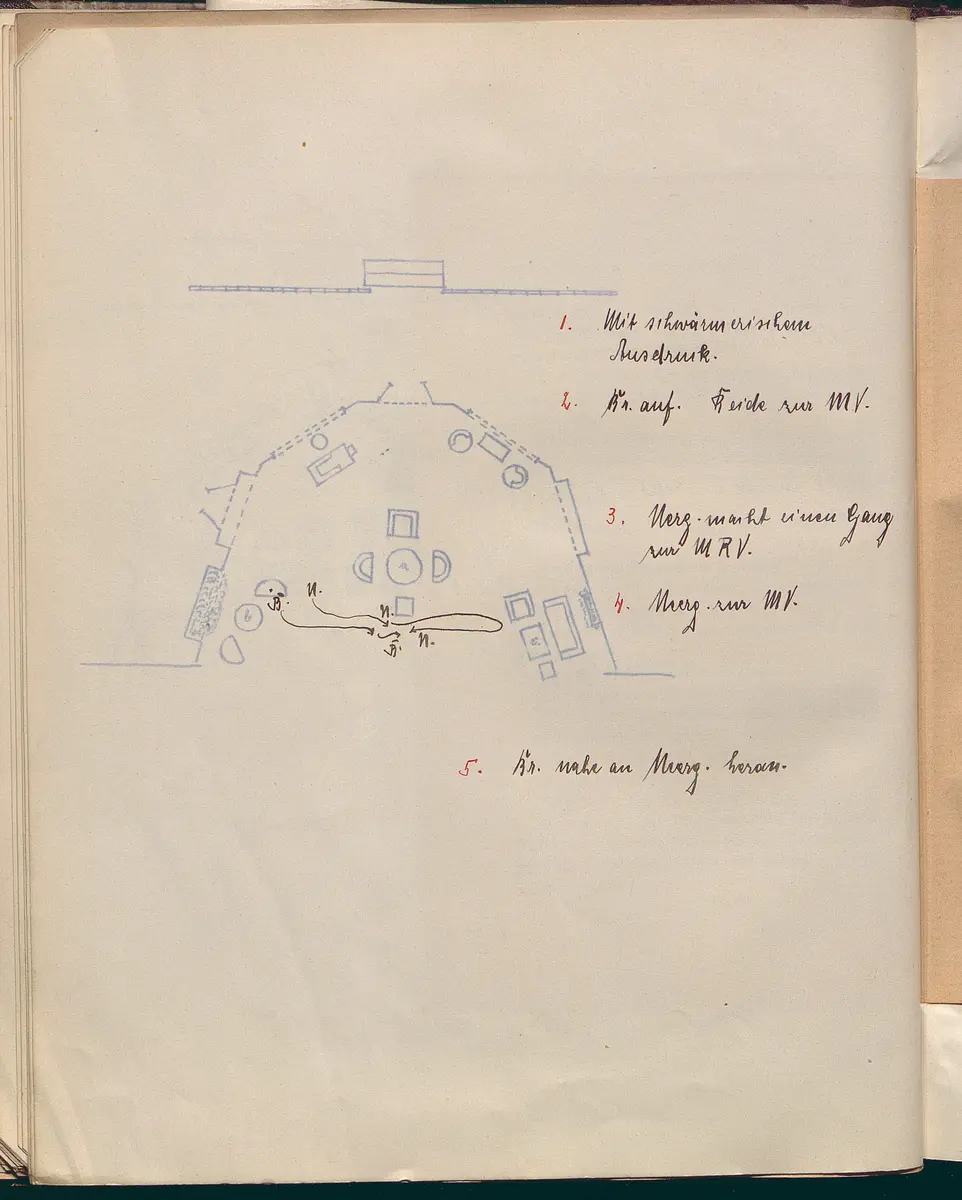 1. Mit schwärmerischem
Ausdruck.
2. Kr. auf. Beide zur MV.
3. Nerg. macht einen Gang
zur MRV.
4. Nerg. zur MV.
a
N.
b
N.
N.
5. Kr. nahe an Nerg. heran.